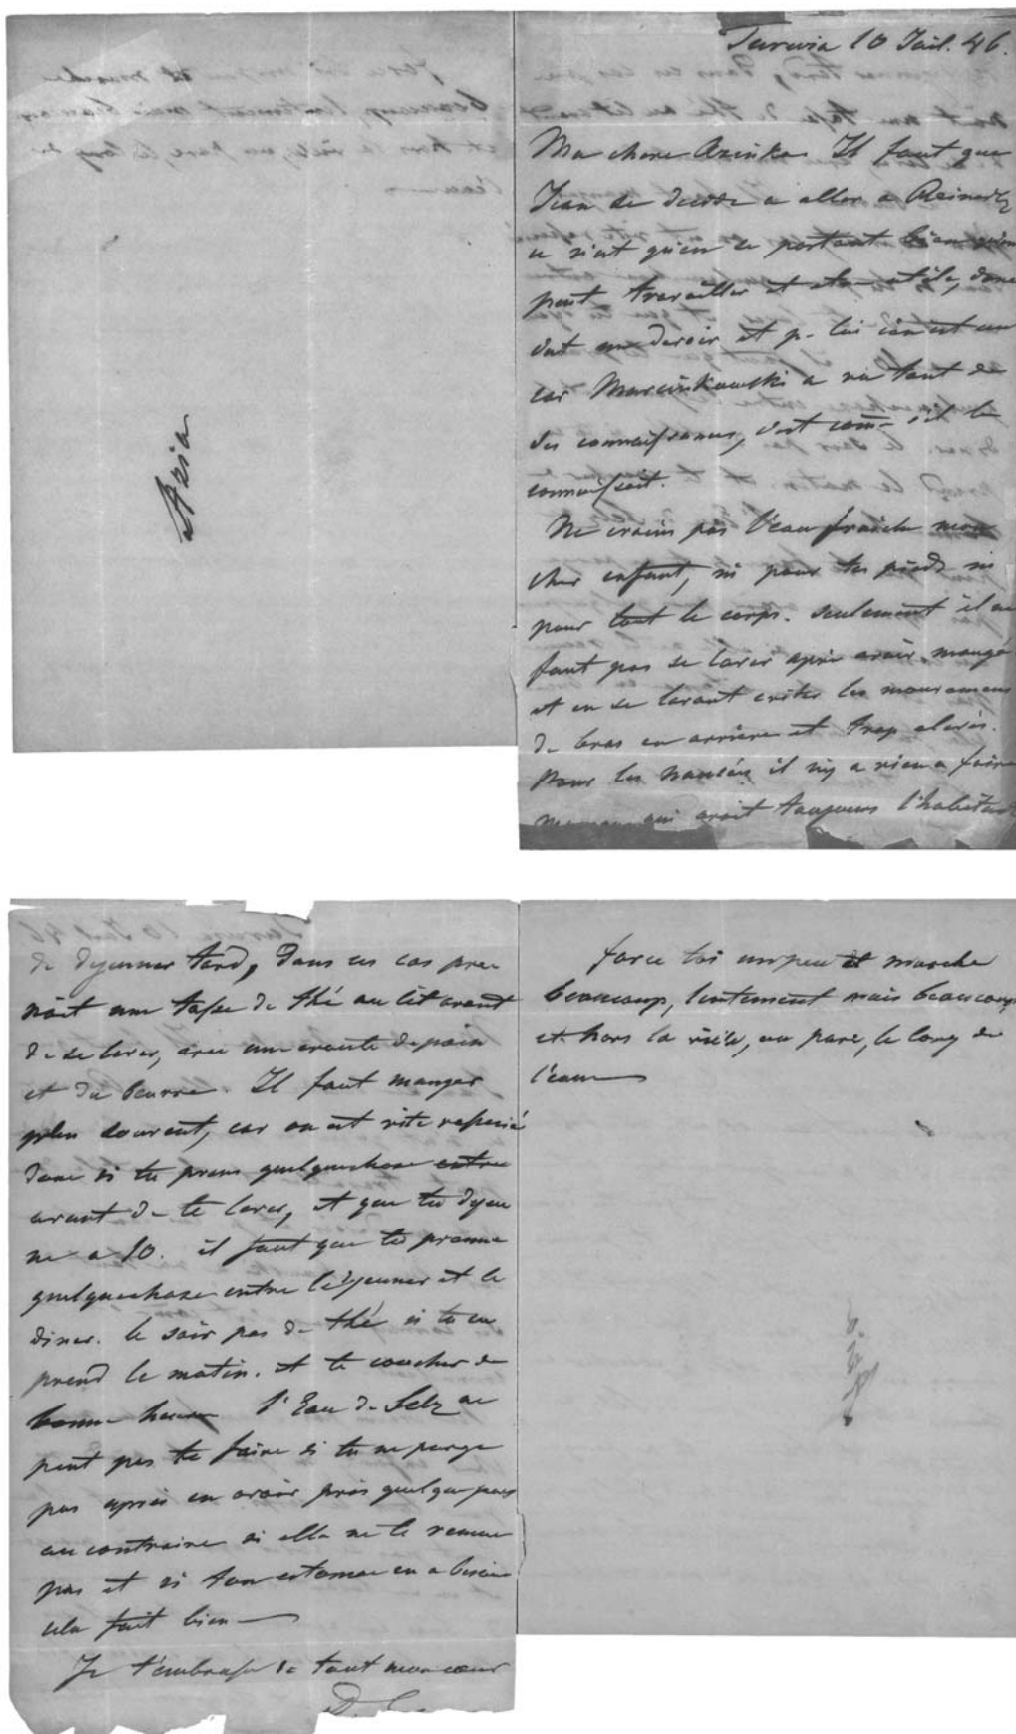 Turwia 10 Juil. 46.
Ma chere Azinka Il faut que
Jean se decide a aller a Reinertz
ce n'est qu'en se portant bien qu'on
peut travailler et etre utile, donc
c'est un devoir et p. lui c'en est un
car Marcinkowski a vu tant de
ses connaissances, c'est com̄e s'il le
connaissait.
Ne crains pas l'eau fraiche mon
cher enfant, ni pour tes pieds ni
pour tout le corps. Seulement il ne
faut pas se laver après avoir mangé
et en se lavant eviter les mouvemens
de bras en arrière et trop elevés.
Pour les nausées il n'y a rien a faire
maman qui avoit toujours l'habitude
Azia
de dejeuner tard, dans ces cas pre-
noit une tasse de thé au lit avant
de se laver, avec une croute de pain
et du beurre. Il faut manger
plus souvent, car on est vite
donc si tu prens quelquechose entre
avant de te laver, et que tu dejeu
ne a 10. il faut que tu prenne
quelquechose entre le dejeuner et le
diner. le soir pas de thé si tu en
prend le matin. et te coucher de
bonne heure l'Eau de Selz ne
peut pas te faire si tu ne purge
pas après en avoir pris quelque peu
au contraire si elle ne te remue
pas et si ton estomac en a besoin
cela fait bien —
Je t'embrasse de tout mon cœur
force toi un peu et marche
beaucoup, lentement mais beaucoup
et hors la ville, au parc, le long de
l'eau —